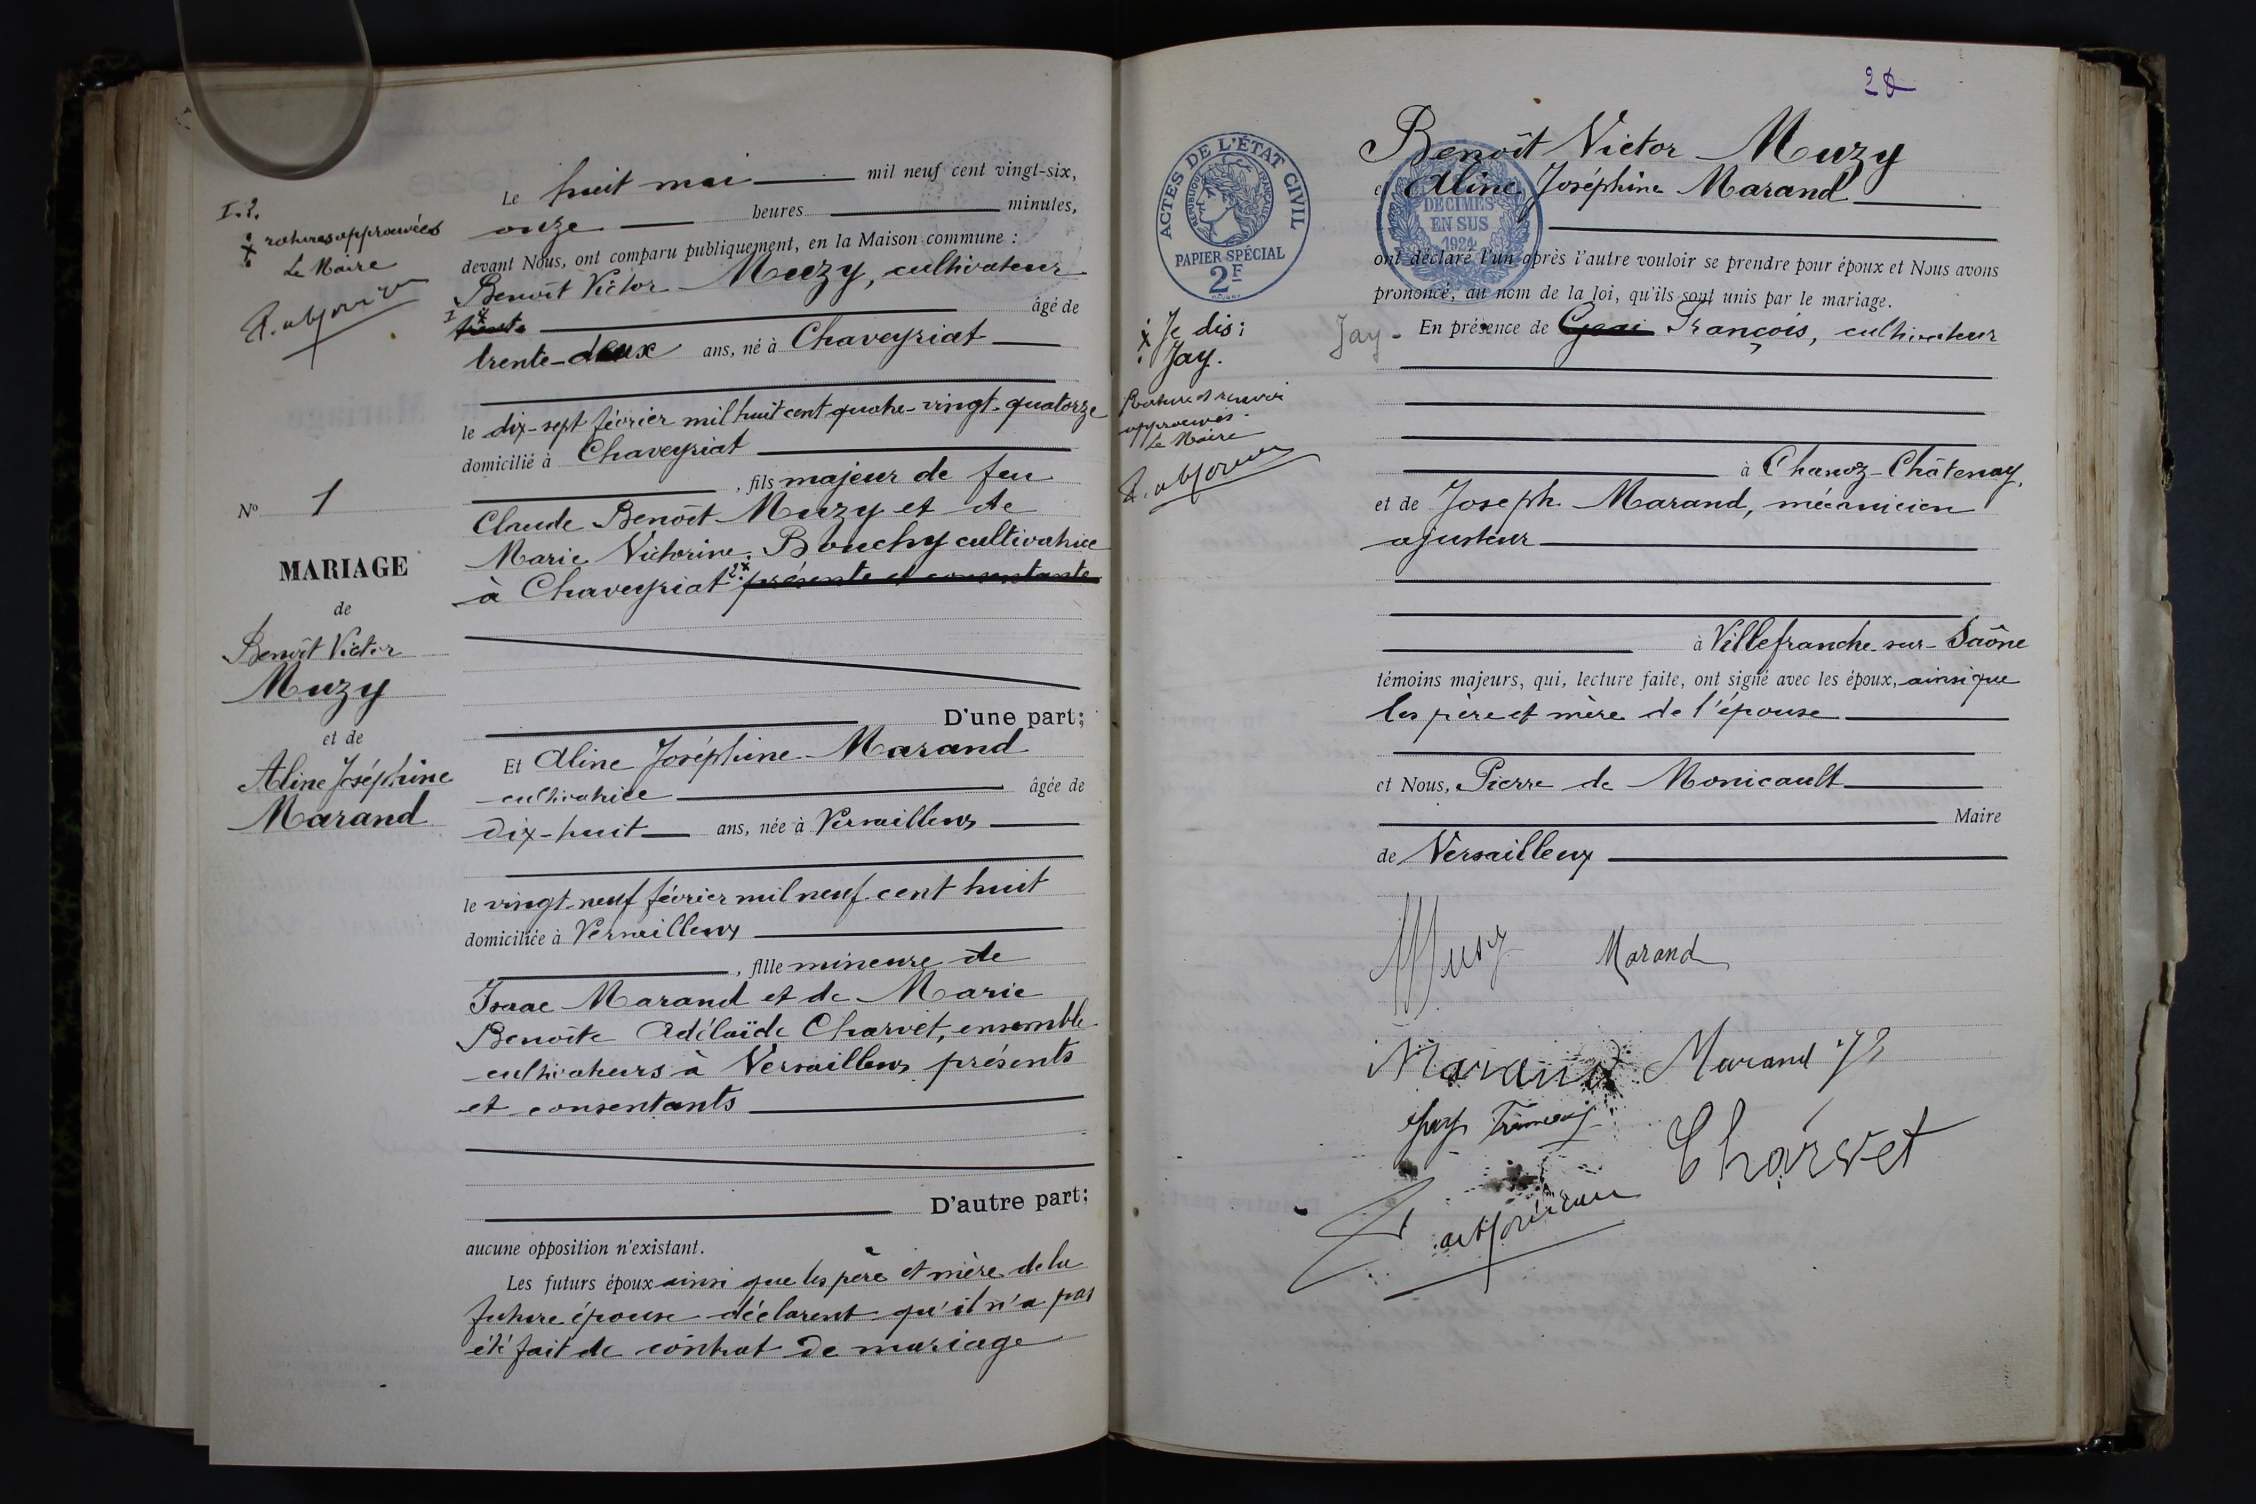 I. 2.
ratures approuvées
Le Maire
Nº 1
MARIAGE
de
Benoît Victor
Muzy
et de
Aline Joséphine
Marand
Le huit mai mil neuf cent vingt-six,
onze heures minutes,
devant Nous, ont comparu publiquement, en la Maison commune :
Benoît Victor Muzy, cultivateur
trente âgé de
trente-deux ans, né à Chaveyriat
le dix-sept février mil huit cent quatre-vingt-quatorze
domicilié à Chaveyriat
, fils majeur de feu
Claude Benoît Muzy et de
Marie Victorine Bouchy cultivatrice
à Chaveyriat présente et consentante
D'une part;
Et Aline Joséphine Marand
cultivatrice âgée de
dix-huit ans, née à Versailleux
le vingt-neuf février mil neuf cent huit
domiciliée à Versailleux
, fille mineure de
Isaac Marand et de Marie
Benoîte Adélaïde Charvet, ensemble
cultivateurs à Versailleux présents
et consentants
D'autre part;
aucune opposition n'existant.
Les futurs époux ainsi que les père et mère de la
future épouse déclarent qu'il n'a pas
été fait de contrat de mariage
ACTES DE L'ÉTAT CIVIL
RÉPUBLIQUE FRANÇAISE
PAPIER SPÉCIAL
2F
Je dis :
Jay.
Rature et renvoi
approuvés.
Le Maire
Benoît Victor Muzy
et Aline Joséphine Marand
DÉCIMES
EN SUS
1924
ont déclaré l'un après l'autre vouloir se prendre pour époux et Nous avons
prononcé, au nom de la loi, qu'ils sont unis par le mariage.
Jay - En présence de François, cultivateur
à Chanoz-Châtenay,
et de Joseph Marand, mécanicien
ajusteur
à Villefranche-sur-Saône
témoins majeurs, qui, lecture faite, ont signé avec les époux, ainsi que
les père et mère de l'épouse
et Nous, Pierre de Monicault
Maire
de Versailleux
Muzy Marand
Marand Marand
Jay François
Charvet